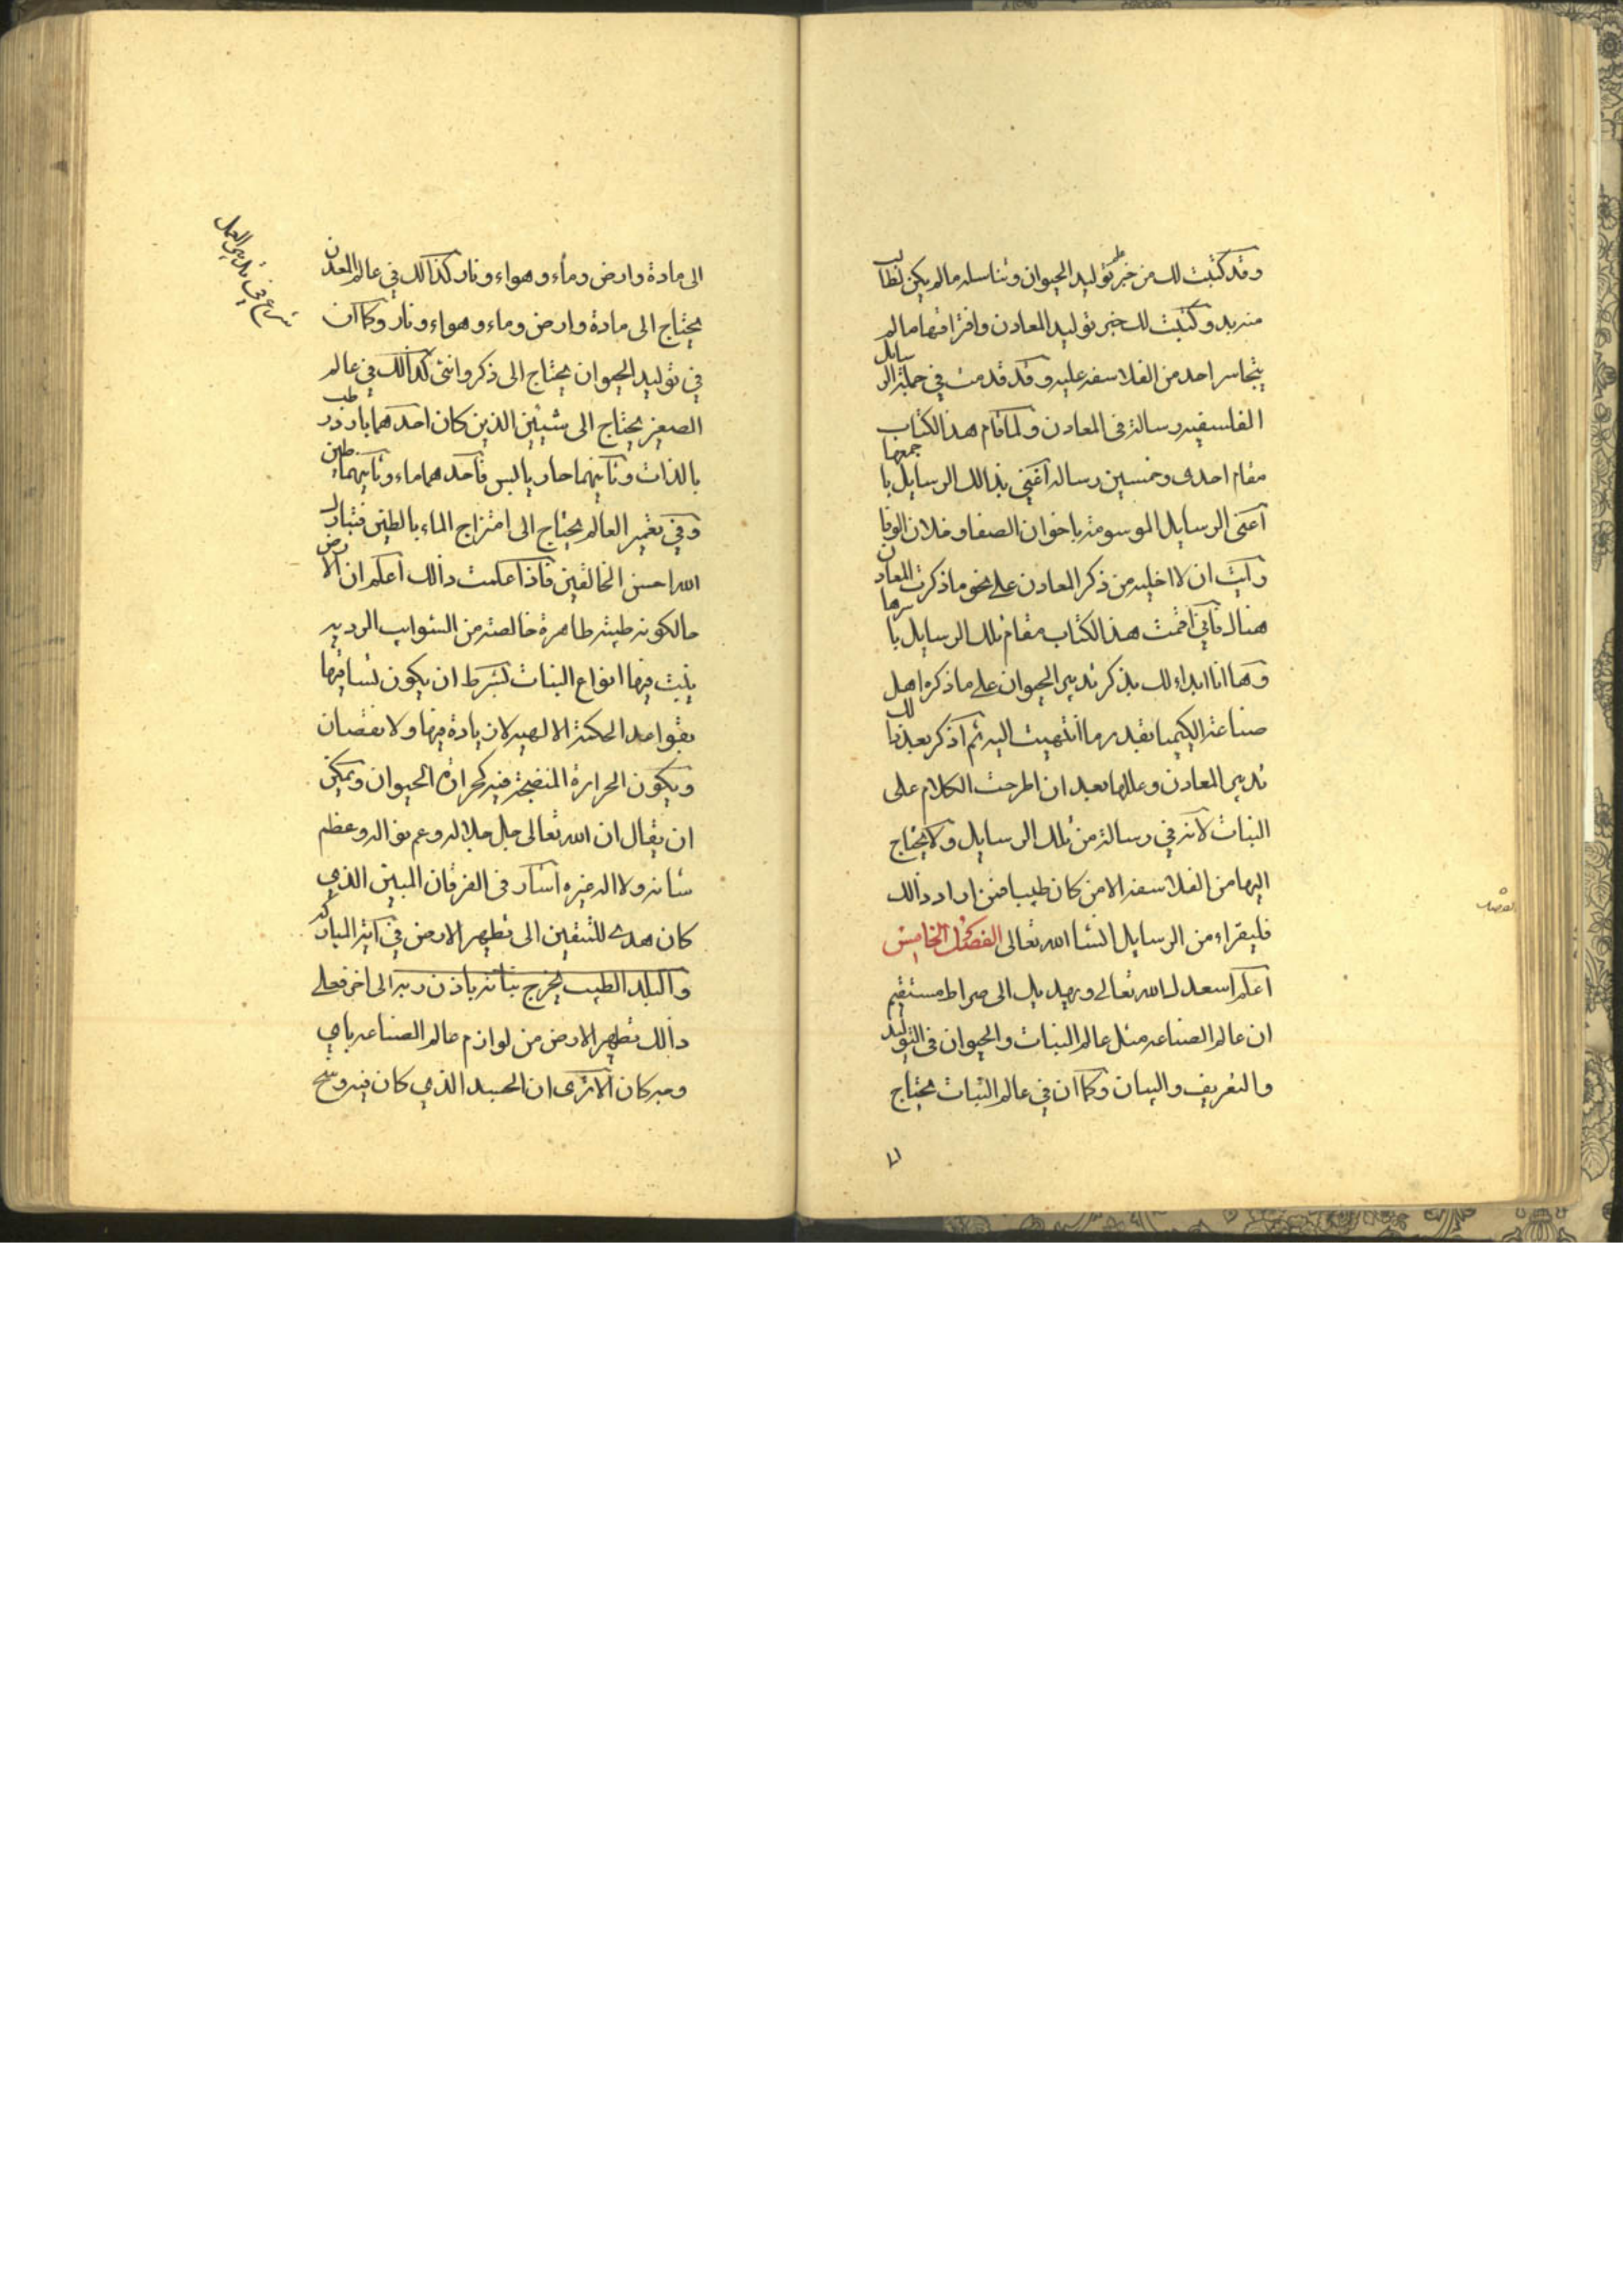 وقد كتبت لك من خبر توليد الحيوان وتناسله مالم يكن لطالب
مزيد وكتبت لك خبر توليد المعادن وافتراقها مالم
يتجاسر احد من الفلاسفه عليه وقد قدمت في جملة الرسايل
الفلسفيه رسالة في المعادن ولما قام هذا الكتاب
مقام احدى وخمسين رساله اعني بذالك الرسايل باجمعها
اعنى الرسايل الموسومة باخوان الصفا وخلان الوفا
رايت ان لا اخليه من ذكر المعادن على نحو ما ذكرت المعادن
هناك فاني اقمت هذا الكتاب مقام تلك الرسايل باسرها
وها انا ابداء لك بذكر تدبير الحيوان على ما ذكره اهل
صناعة الكيميا بقدر ما انتهيت اليه ثم اذكر بعد ذالك
تدبير المعادن وعللها بعد ان اطرحت الكلام على
النبات لانه في رسالة من تلك الرسايل ولا يحتاج
اليها من الفلاسفه الا من كان طبيبا فمن اراد ذالك
فليقراء من الرسايل انشا الله تعالى الفصل الخامس
اعلم اسعدك الله تعالى ويهديك الى صراط مستقيم
ان عالم الصناعه مثل عالم النبات والحيوان في التوليد
والتعريف والبيان وكما ان في عالم النبات يحتاج
الى مادة وارض وماء وهواء ونار كذالك في عالم المعدن
يحتاج الى مادة وارض وماء وهواء ونار وكما ان
في توليد الحيوان يحتاج الى ذكر وانثى كذالك في عالم
الصغير يحتاج الى شيئين الذين كان احدهما بارد رطب
بالذات وثانيهما حار يابس فاحدهما ماء وثانيهما طين
وفي تعمير العالم يحتاج الى امتزاج الماء بالطين فتبارك
الله احسن الخالقين فاذا علمت ذالك اعلم ان الارض
حالكونه طيبة طاهرة خالصة من الشوايب الرديه
ينبت فيها انواع النبات بشرط ان يكون
بقواعد الحكمة الالهيه لا زيادة فيها ولا نقصان
ويكون الحرارة المنضجة فيه كحرارة الحيوان ويمكن
ان يقال ان الله تعالى جل جلاله وعم نواله وعظم
شانه ولا اله غيره اشار في الفرقان المبين الذي
كان هدى للمتقين الى تطهير الارض في آية المباركه
والبلد الطيب يخرج نباته باذن ربه الى اخر فعلى
ذالك تطهير الارض من لوازم عالم الصناعه باي
وجه كان الا ترى ان الجسد الذي كان فيه وسخ
شرع في تدبير العمل